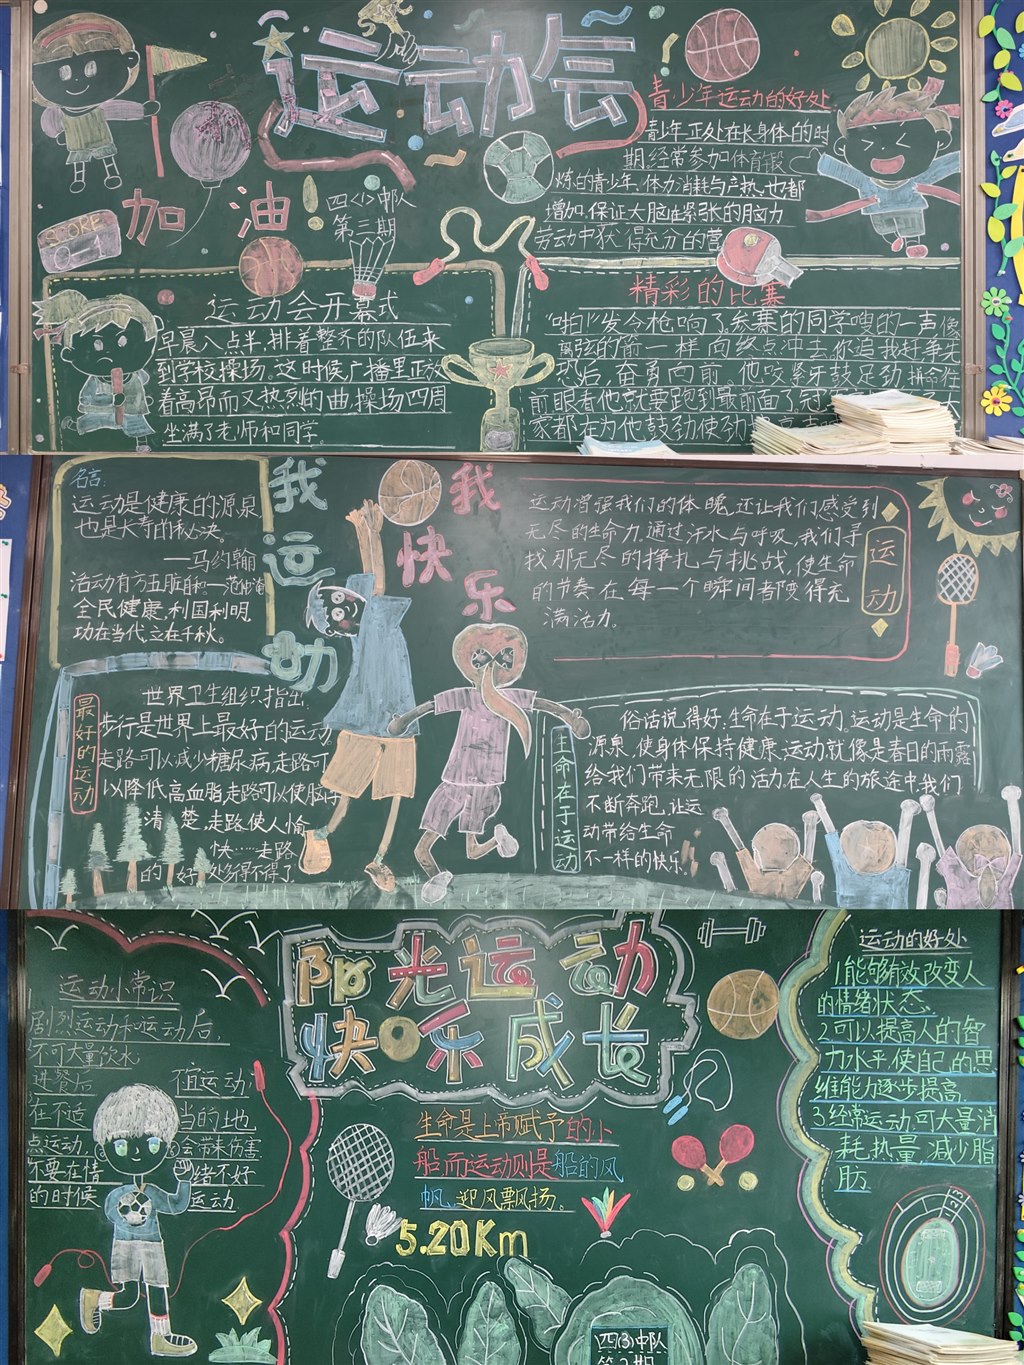 运动会
加油
四<1>中队
第三期
SCORE
0-1
青少年运动的好处
青少年正处在长身体的时
期,经常参加体育锻
炼的青少年,体力消耗与产热,也都
增加,保证大脑在紧张的脑力
劳动中获得充分的营
运动会开幕式
早晨八点半,排着整齐的队伍来
到学校操场,这时候广播里正放
着高昂而又热烈的曲,操场四周
坐满了老师和同学。
精彩的比赛
"啪!"发令枪响了,参赛的同学嗖的一声像
离弦的箭一样向终点冲去,你追我赶,争先
恐后,奋勇向前。他咬紧牙鼓足劲,拼命往
前眼看他就要跑到最前面了
家都在为他鼓劲使劲
我运动
我快乐
名言:
运动是健康的源泉
也是长寿的秘决。
——马约翰
活动有方五脏自和。
全民健康,利国利明,
功在当代,立在千秋。
运动增强我们的体 ,还让我们感受到
无尽的生命力,通过汗水与呼吸,我们寻
找那无尽的挣扎与挑战,使生命
的节奏在每一个瞬间都变得充
满活力。
运动
最好的运动
世界卫生组织指出,
步行是世界上最好的运动。
走路可以减少糖尿病,走路可
以降低高血脂走路可以使脑子
清楚,走路使人愉
快……走路
的好处多得不得了
生命在于运动
俗话说得好:生命在于运动。运动是生命的
源泉,使身体保持健康,运动就像是春日的雨露
给我们带来无限的活力在人生的旅途中,我们
不断奔跑,让运
动带给生命
不一样的快乐。
阳光运动
快乐成长
运动小常识
剧烈运动和运动后,
不可大量饮水
进餐后 不宜运动
在不适当的地
点运动,会带来伤害
不要在情绪不好
的时候运动
生命是上帝赋予的小
船,而运动则是船的风
帆,迎风飘扬。
5.20Km
运动的好处
1.能够有效改变人
的情绪状态.
2.可以提高人的智
力水平,使自己的思
维能力逐步提高.
3.经常运动,可大量消
耗热量,减少脂
肪.
123
四(3)中队
第2期